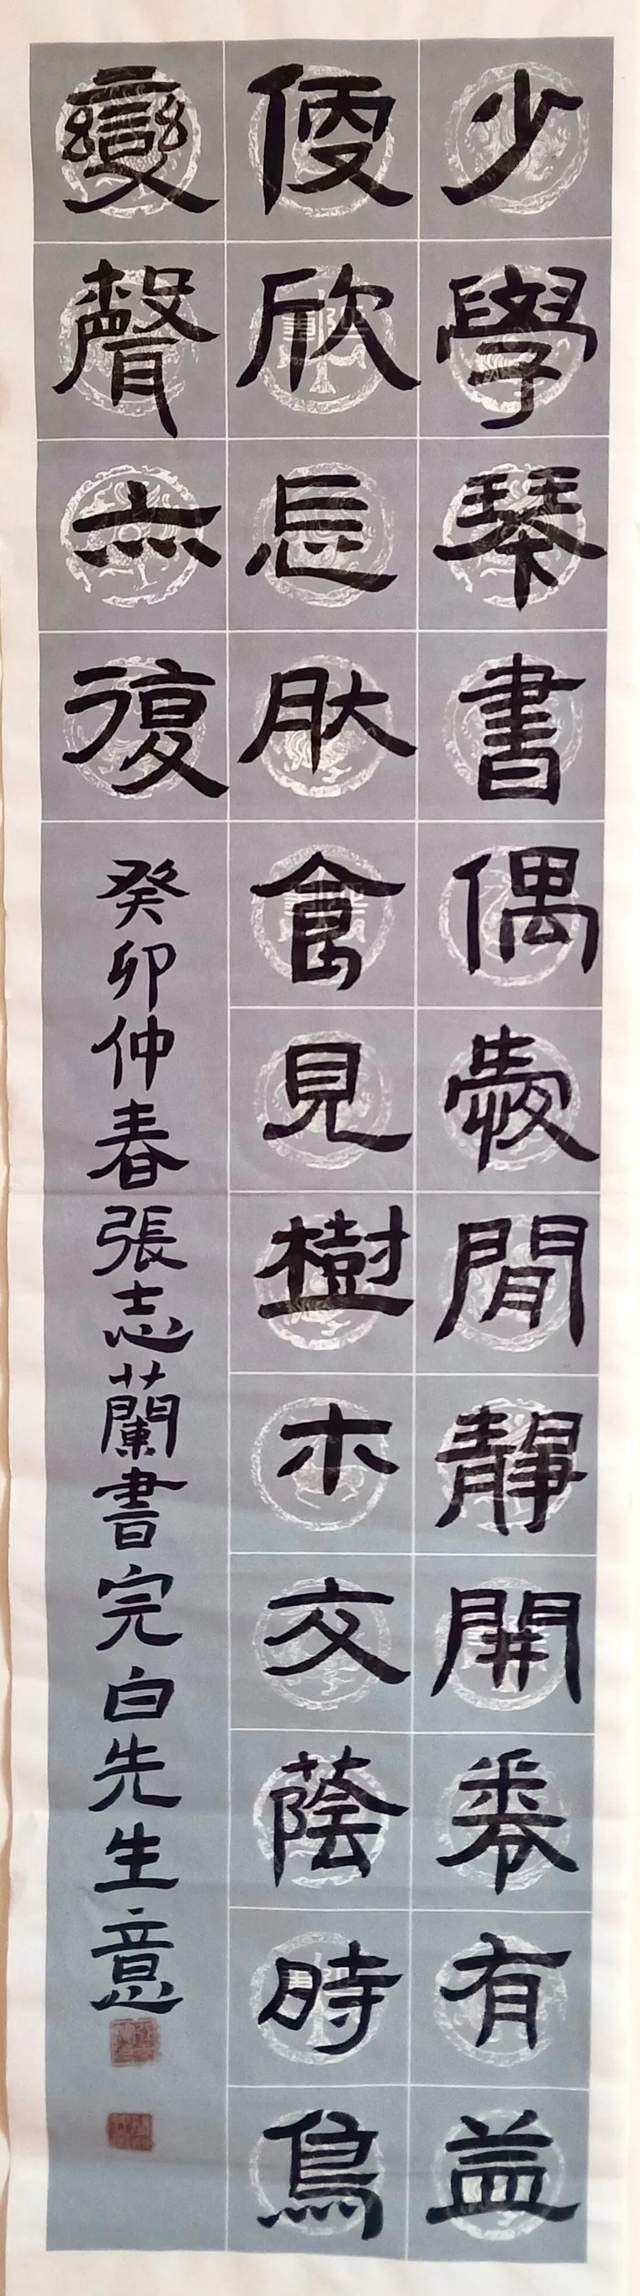 少學琴書偶愛閒靜開卷有益
便欣忘肰食見樹木交蔭時鳥
變聲亦復
癸卯仲春張志蘭書完白先生意